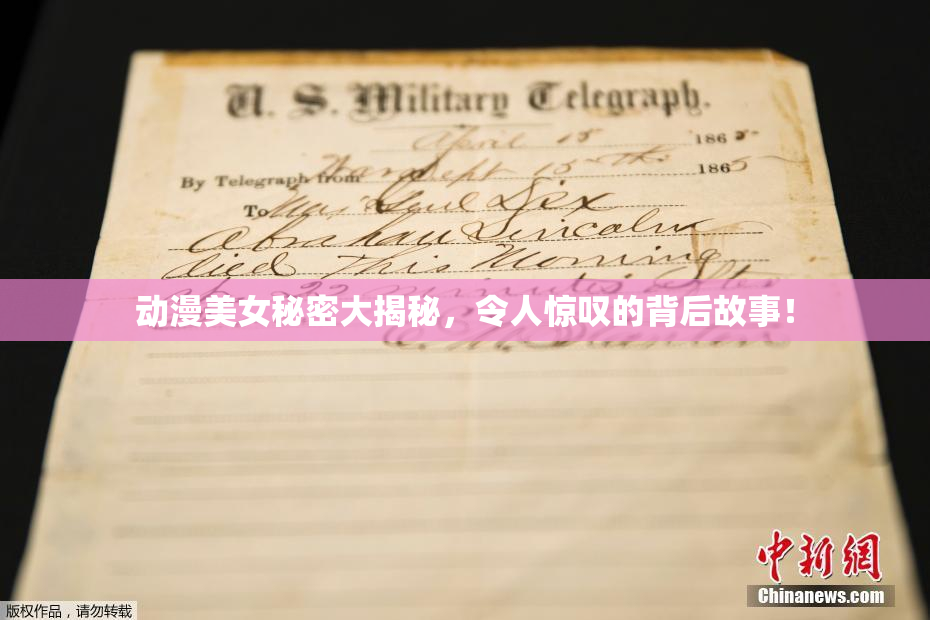 U. S. Military Telegraph.
April 15 1865
By Telegraph from War Dept 15th 1865
To Maj Genl Dix
Abraham Lincoln
died This Morning
at 22 minutes after
动漫美女秘密大揭秘，令人惊叹的背后故事！
E. M. Stanton
中新网
Chinanews.com
版权作品，请勿转载